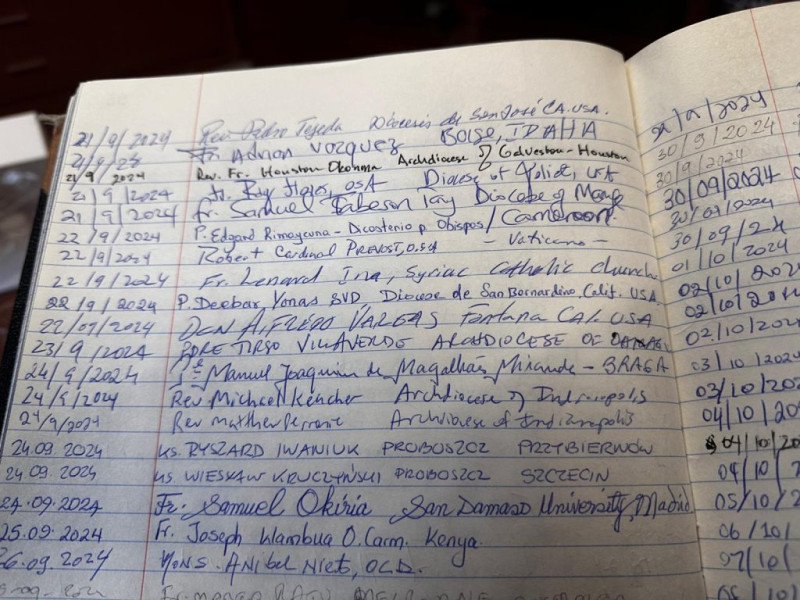 21/9/2024 Rev. Pedro Tejeda Diocesis de San José CA. USA.
21/9/24 Fr Adrian Vazquez BOISE, IDAHA
21/9 2024 Rev. Fr. Houston Okonma Archdiocese of Galveston-Houston
21/9/2024 Fr. Ray Flores, OSA Diocese of Joliet, USA
21/9/2024 Fr. Samuel Tay Diocese of / Cameroon.
22/9/2024 P. Edgard Rimaycuna - Dicasterio p. Obispos
22/9/2024 Robert Cardinal PREVOST, O.S.A - Vaticano -
22/9/2024 Fr. Lenard Ina, Syriac Catholic church
22/9/2024 P. Deebar Yonas SVD, Diocese de San Bernardino, Calif. USA.
22/09/2024 DON ALFREDO VARGAS Fontana CAL USA
23/9/2024 PDRE TIRSO VILLAVERDE ARCHDIOCESE OF
24/9/2024 Manuel Joaquim de Magalhães Miranda - BRAGA
24/9/2024 Rev Michael Keucher Archdiocese of Indianapolis
24/9/2024 Rev Matthew Perronie Archdiocese of Indianapolis
24.09.2024 KS. RYSZARD IWANIUK PROBOSZCZ PRZYBIERNÓW
24.09.2024 KS WIESŁAW KRUCZYŃSKI PROBOSZCZ SZCZECIN
24.09.2024 Fr. Samuel Okiria San Damaso University, Madrid
25.09.2024 Fr. Joseph Wambua O.Carm. Kenya.
26.09.2024 MONS. ANIBAL NIETO, OCD.
30/9/2024
30/9/2024
30/09/2024
30/09/2024
30/09/24
01/10/2024
02/10/202
02/10/20
02/10/202
03/10/2024
03/10/20
04/10/20
04/10/20
04/10/
05/10/2
06/10/
07/10/